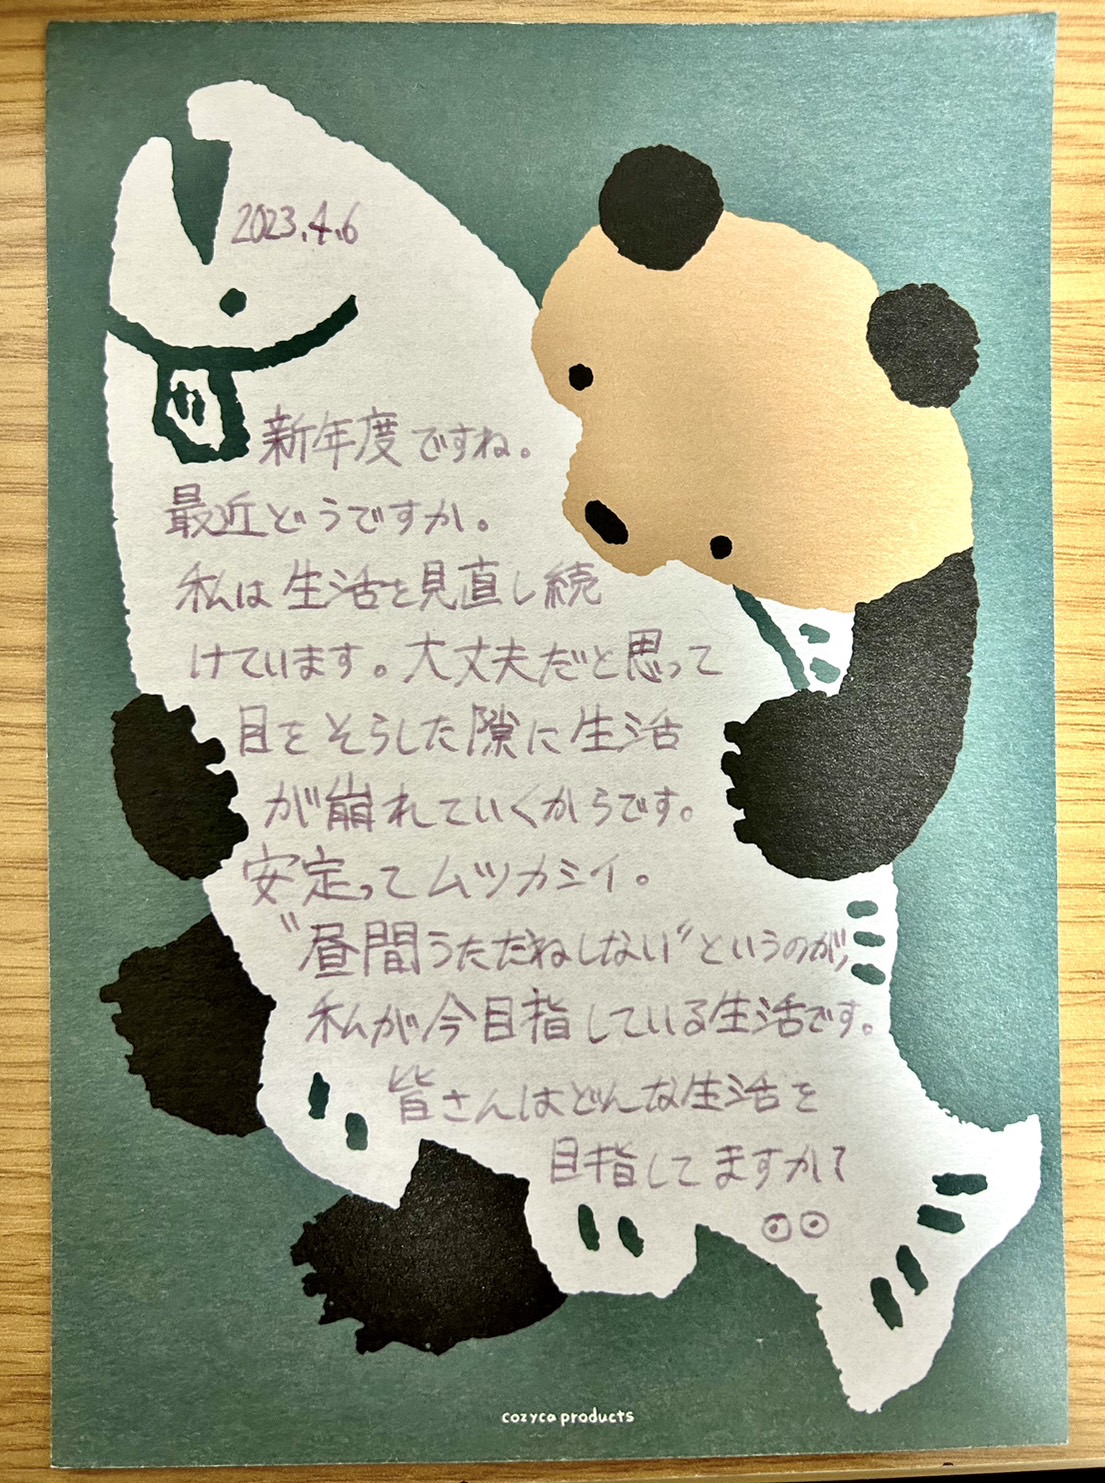 2023.4.6
新年度ですね。
最近どうですか。
私は生活を見直し続
けています。大丈夫だと思って
目をそらした隙に生活
が崩れていくからです。
安定ってムツカシイ。
〝昼間うたたねしない〟というのが、
私が今目指している生活です。
皆さんはどんな生活を
目指してますか?
cozyca products